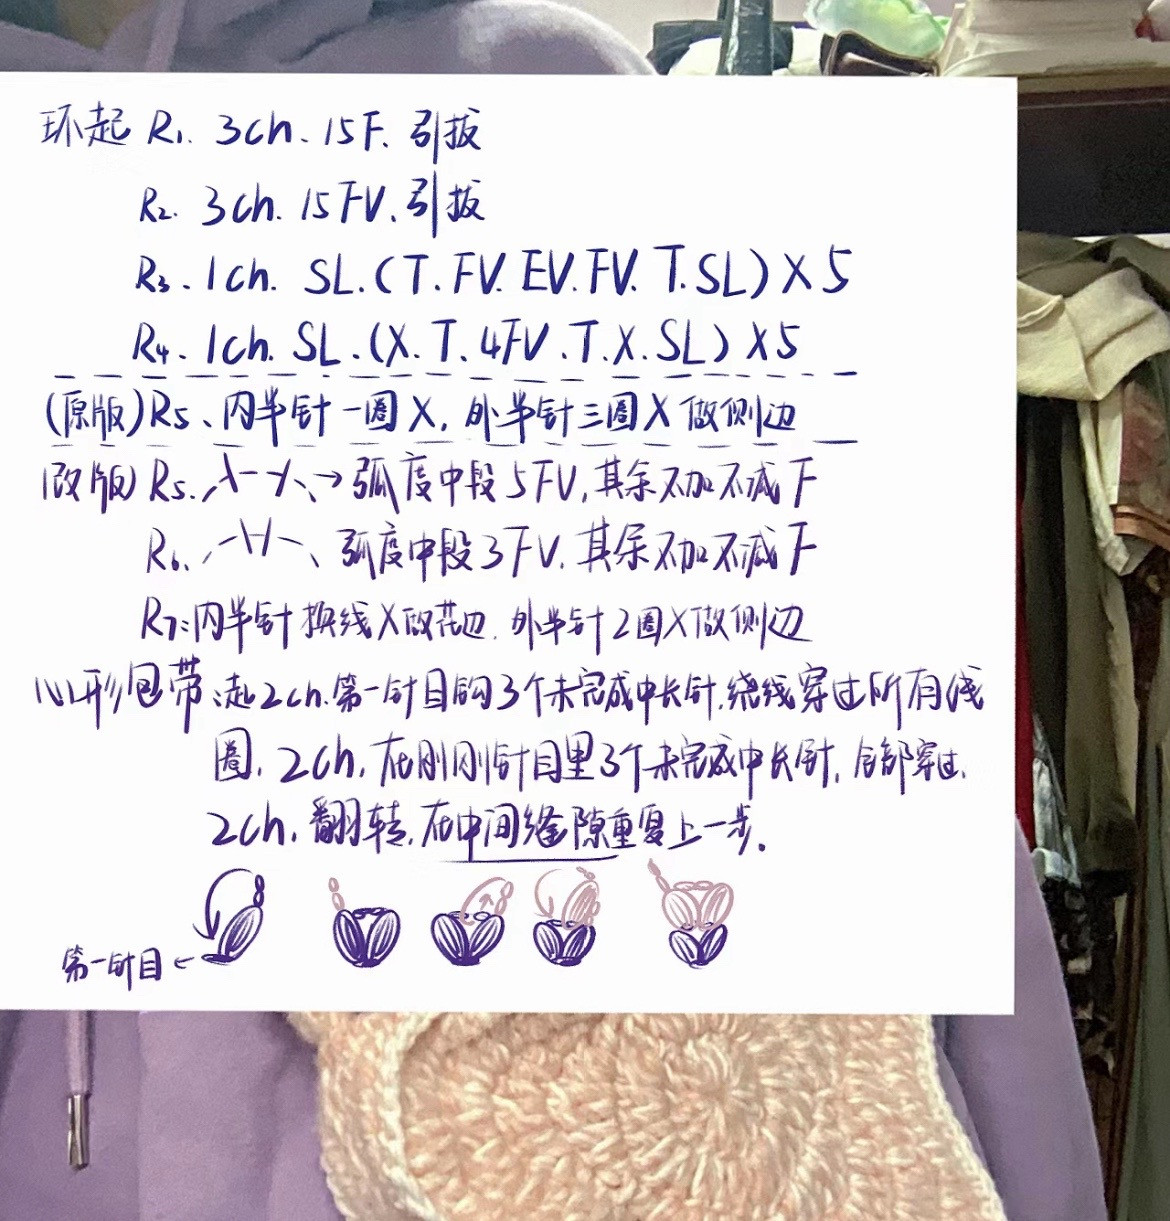 环起 R1. 3ch、15F、引拔
R2. 3ch. 15FV、引拔
R3. 1ch. SL.(T.FV.EV.FV.T.SL)X5
R4. 1ch. SL.(X.T.4FV.T.X.SL)X5
(原版)R5、内半针一圈X,外半针三圈X做侧边
(改版)R5. 弧度中段5FV,其余不加不减F
R6. 弧度中段3FV.其余不加不减F
R7:内半针换线X做花边.外半针2圈X做侧边
心形包带:起2ch.第一针目钩3个未完成中长针,绕线穿过所有线
圈.2ch,在刚刚针目里3个未完成中长针,全部穿过.
2ch,翻转,在中间缝隙重复上一步.
第一针目